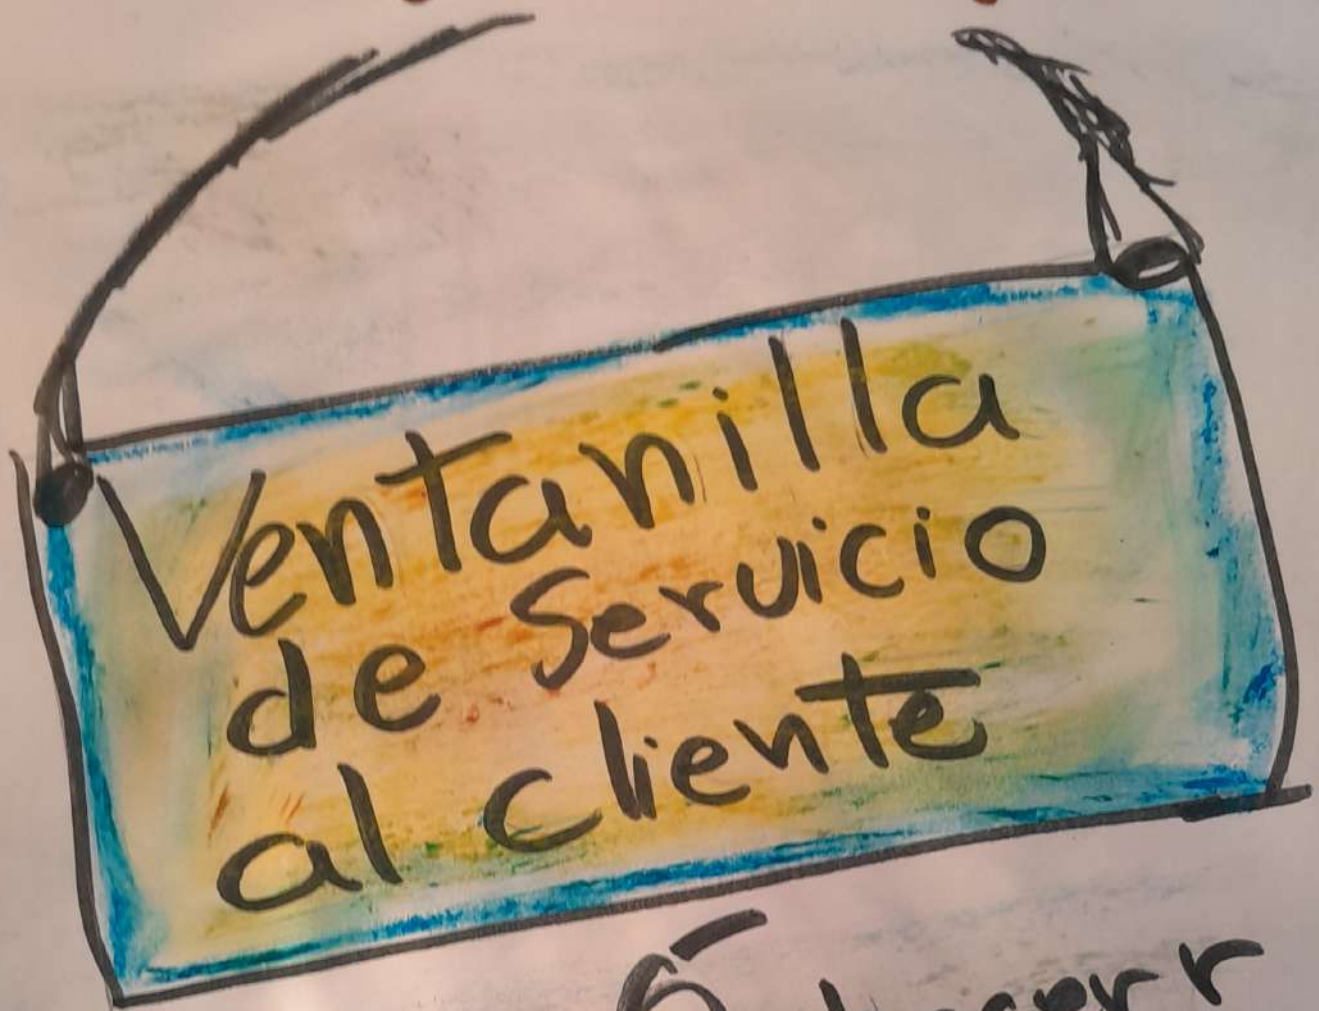 Ventanilla
de Servicio
al cliente